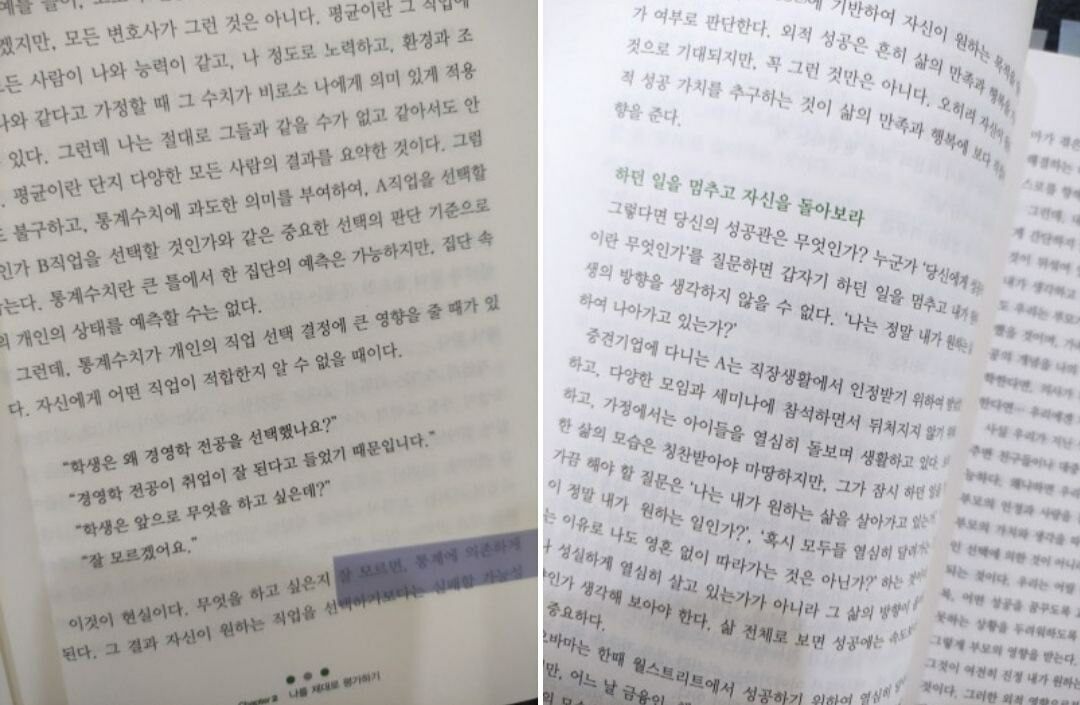 겠지만, 모든 변호사가 그런 것은 아니다. 평균이란 그 직업에
사람이 나와 능력이 같고, 나 정도로 노력하고, 환경과 조
같다고 가정할 때 그 수치가 비로소 나에게 의미 있게 적용
있다. 그런데 나는 절대로 그들과 같을 수가 없고 같아서도 안
평균이란 단지 다양한 모든 사람의 결과를 요약한 것이다. 그럼
불구하고, 통계수치에 과도한 의미를 부여하여, A직업을 선택할
인가 B직업을 선택할 것인가와 같은 중요한 선택의 판단 기준으로
는다. 통계수치란 큰 틀에서 한 집단의 예측은 가능하지만, 집단 속
의 개인의 상태를 예측할 수는 없다.
그런데, 통계수치가 개인의 직업 선택 결정에 큰 영향을 줄 때가 있
다. 자신에게 어떤 직업이 적합한지 알 수 없을 때이다.
“학생은 왜 경영학 전공을 선택했나요?”
“경영학 전공이 취업이 잘 된다고 들었기 때문입니다.”
“학생은 앞으로 무엇을 하고 싶은데?”
“잘 모르겠어요.”
이것이 현실이다. 무엇을 하고 싶은지 잘 모르면, 통계에 의존하게
된다. 그 결과 자신이 원하는 직업을 선택하기보다는 실패할 가능성
Chapter 2 나를 제대로 평가하기
기반하여 자신이 원하는 목적을
가 여부로 판단한다. 외적 성공은 흔히 삶의 만족과 행복을
것으로 기대되지만, 꼭 그런 것만은 아니다. 오히려 자신의
적 성공 가치를 추구하는 것이 삶의 만족과 행복에 보다
향을 준다.
하던 일을 멈추고 자신을 돌아보라
그렇다면 당신의 성공관은 무엇인가? 누군가 ‘당신에게
이란 무엇인가’를 질문하면 갑자기 하던 일을 멈추고 내가
생의 방향을 생각하지 않을 수 없다. ‘나는 정말 내가 원하는
하여 나아가고 있는가?’
중견기업에 다니는 A는 직장생활에서 인정받기 위하여
하고, 다양한 모임과 세미나에 참석하면서 뒤처지지 않기
하고, 가정에서는 아이들을 열심히 돌보며 생활하고 있다.
한 삶의 모습은 칭찬받아야 마땅하지만, 그가 잠시 하던 일을
가끔 해야 할 질문은 ‘나는 내가 원하는 삶을 살아가고 있는가
이 정말 내가 원하는 일인가?’, ‘혹시 모두들 열심히
는 이유로 나도 영혼 없이 따라가는 것은 아닌가?’ 하는
성실하게 열심히 살고 있는가가 아니라 그 삶의 방향이
인가 생각해 보아야 한다. 삶 전체로 보면 성공에는
중요하다.
오바마는 한때 월스트리트에서 성공하기 위하여 열심히
어느 날 금융인
해결하는
그런데,
게 간단하지
내가 생각하고
도 우리는 부모
공의 개념을 나의
사실 우리가 지닌
주변 친구들이나 대중
능하다. 왜냐하면 우리
부모의 인정과 사랑을
부모의 가치와 생각을
인 선택에 의한 것이 아니라
되는 것이다. 우리는 어릴
어떤 성공을 꿈꾸도록
못하는 상황을 두려워하도록
그렇게 부모의 영향을 받는다.
그것이 여전히 진정 내가 원하는
것이다. 그러한 외적 영향으로부